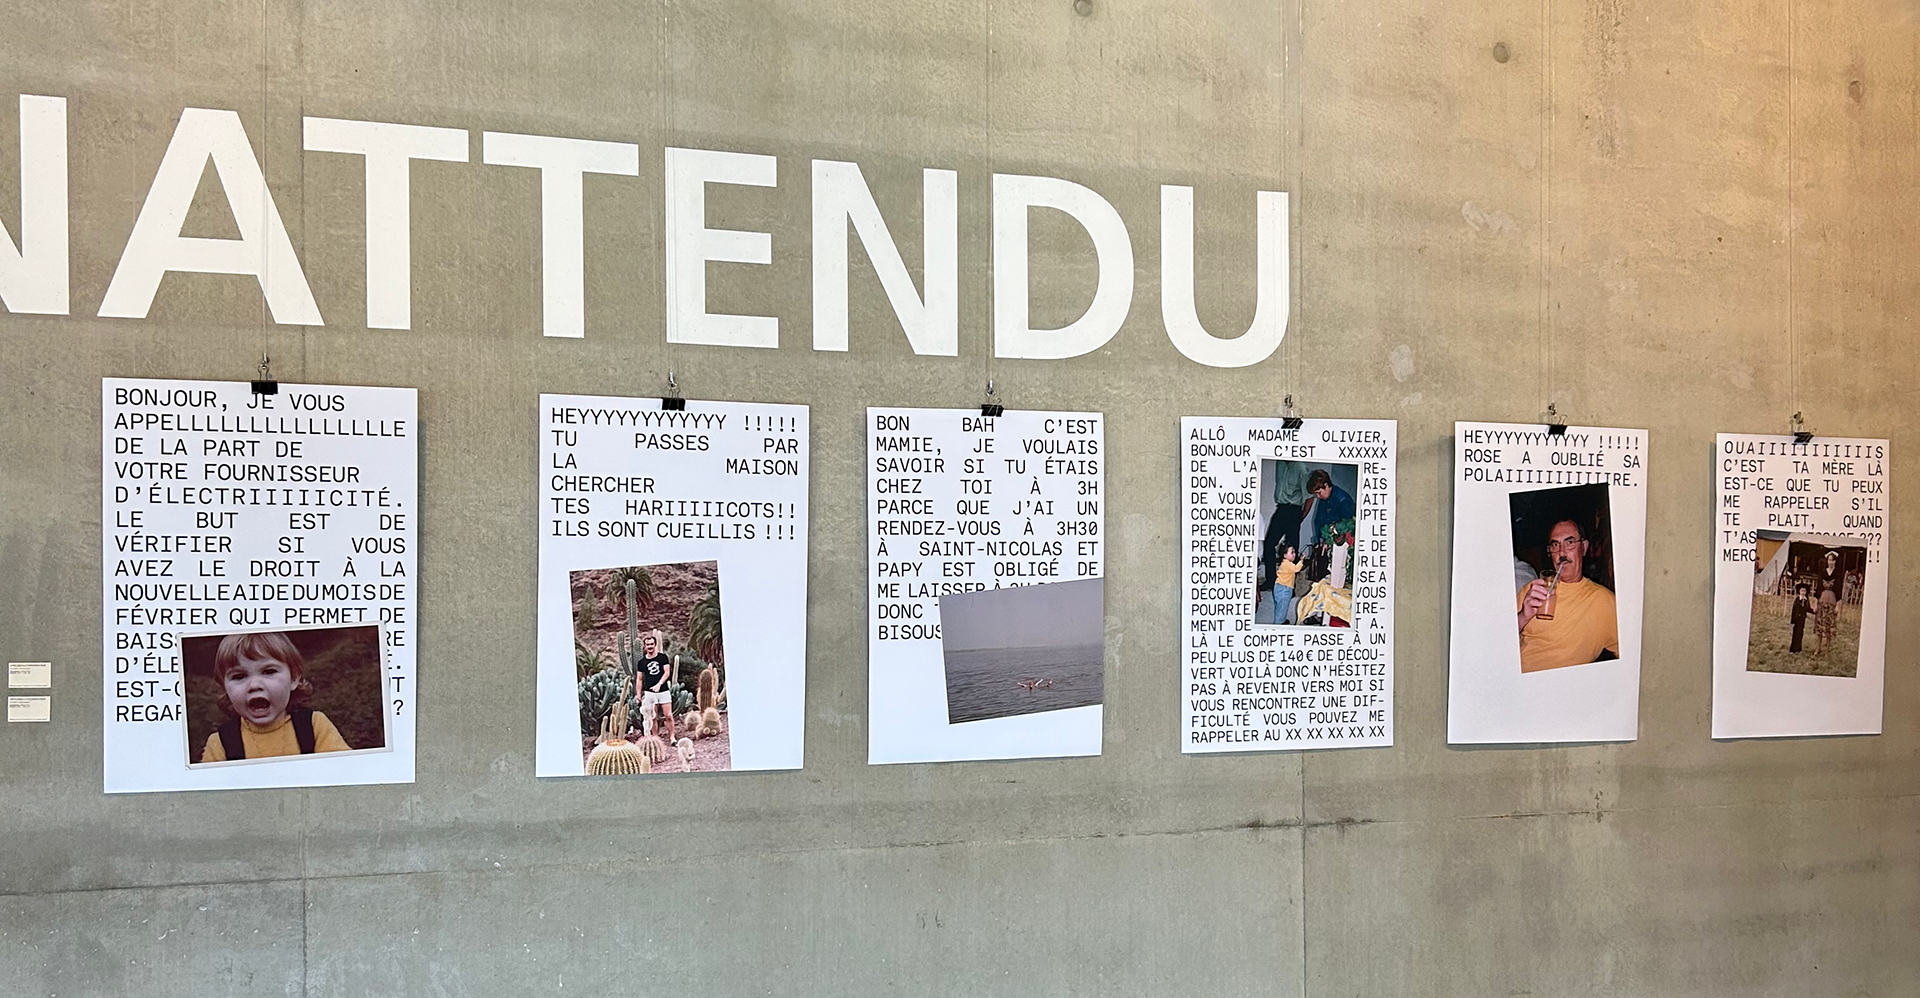 NATTENDU
BONJOUR, JE VOUS
APPELLLLLLLLLLLLLLLLE
DE LA PART DE
VOTRE FOURNISSEUR
D'ÉLECTRIIIIICITÉ.
LE BUT EST DE
VÉRIFIER SI VOUS
AVEZ LE DROIT À LA
NOUVELLE AIDE DU MOIS DE
FÉVRIER QUI PERMET DE
BAISS RE
D'ÉLE
EST-
REGAR ?
HEYYYYYYYYYYYY !!!!!
TU PASSES PAR
LA MAISON
CHERCHER
TES HARIIIIICOTS!!
ILS SONT CUEILLIS !!!
BON BAH C'EST
MAMIE, JE VOULAIS
SAVOIR SI TU ÉTAIS
CHEZ TOI À 3H
PARCE QUE J'AI UN
RENDEZ-VOUS À 3H30
À SAINT-NICOLAS ET
PAPY EST OBLIGÉ DE
ME LAISSER À
DONC
BISOUS
ALLÔ MADAME OLIVIER,
BONJOUR C'EST XXXXXX
DE L'A RE-
DON. JE AIS
DE VOUS AIT
CONCERNA PTE
PERSONNE LE
PRÉLÈVEM E DE
PRÊT QUI R LE
COMPTE E SE A
DÉCOUVE VOUS
POURRIE IRE-
MENT DE T A.
LÀ LE COMPTE PASSE À UN
PEU PLUS DE 140€ DE DÉCOU-
VERT VOILÀ DONC N'HÉSITEZ
PAS À REVENIR VERS MOI SI
VOUS RENCONTREZ UNE DIF-
FICULTÉ VOUS POUVEZ ME
RAPPELER AU XX XX XX XX XX
HEYYYYYYYYYYY !!!!!
ROSE A OUBLIÉ SA
POLAIIIIIIIIIIIRE.
OUAIIIIIIIIIIIS
C'EST TA MÈRE LÀ
EST-CE QUE TU PEUX
ME RAPPELER S'IL
TE PLAIT, QUAND
T'AS ???
MERC !!